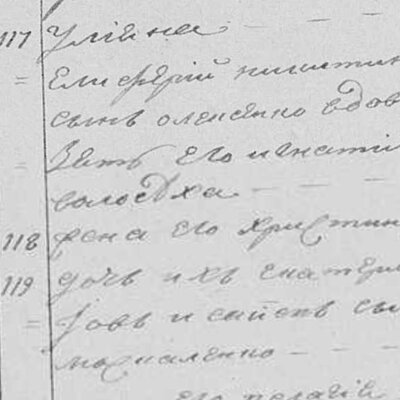 117 улияна
= Елиферій никитин
сынъ олексенко вдов
Зять его игнатій
волод ха
118 жена его христин
119 дочь ихъ екатери
= Іовъ
москаленко
его пелагія